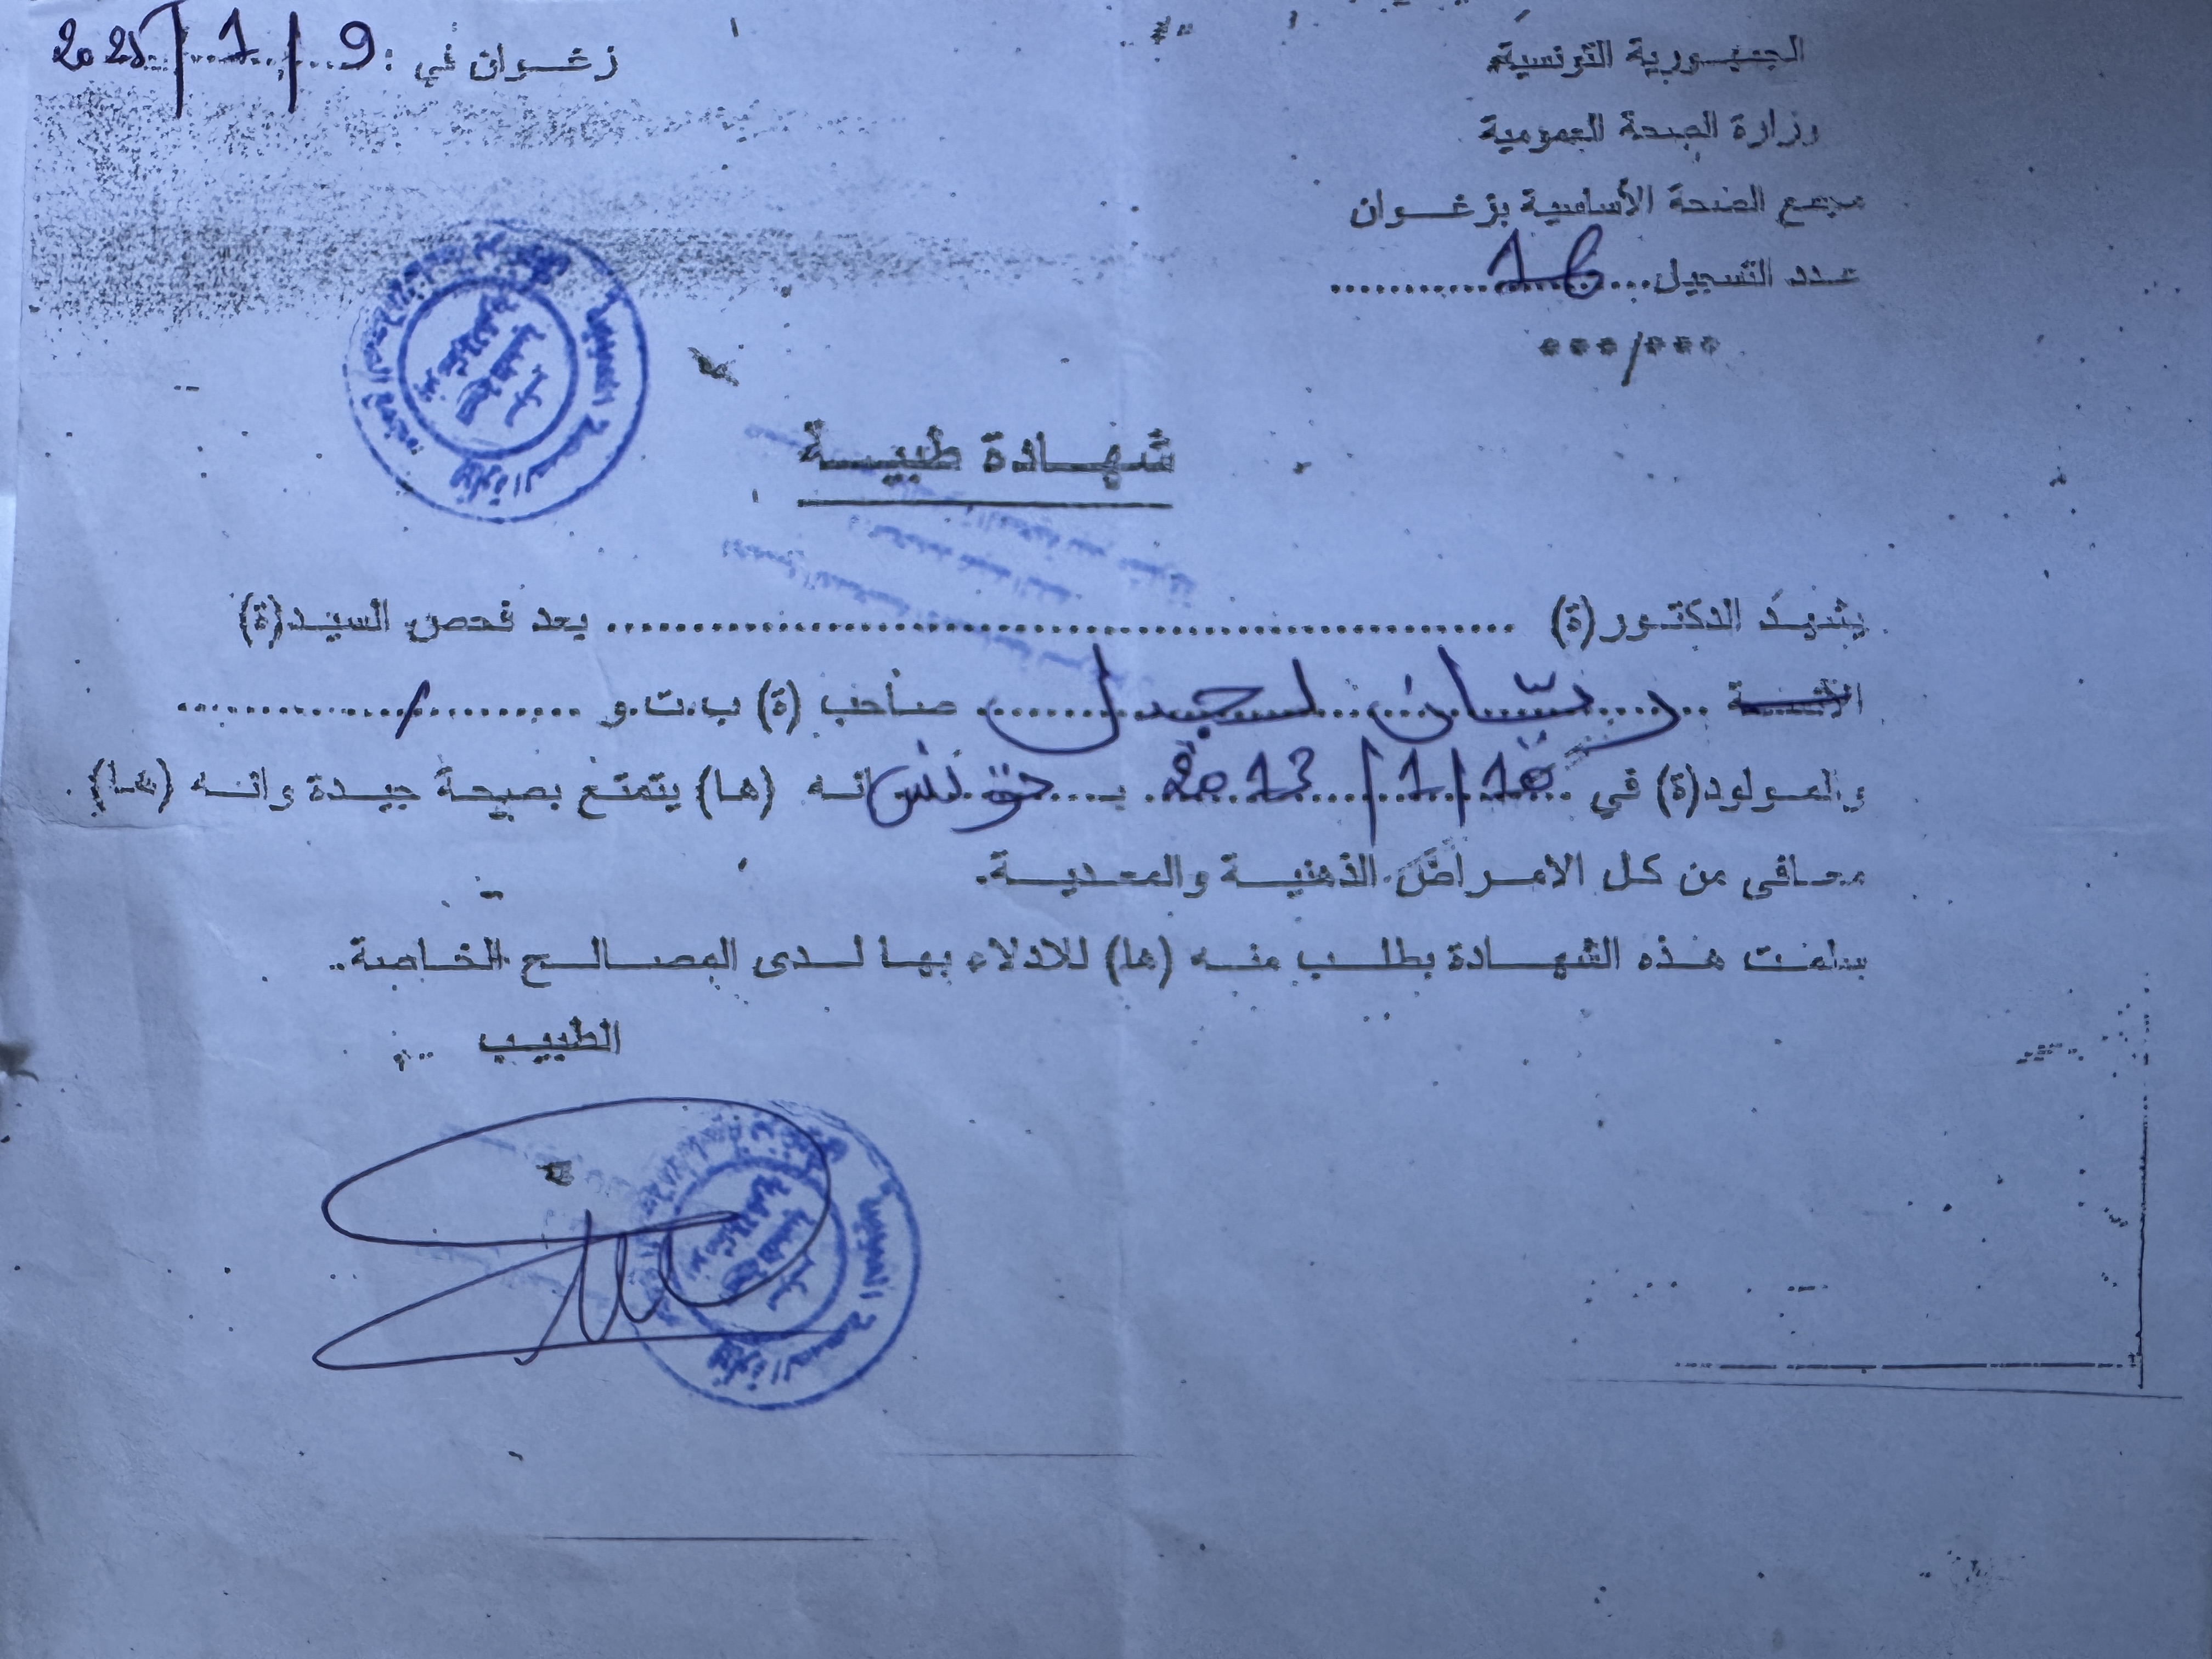 الجمهورية التونسية
وزارة الصحة العمومية
مجمع الصحة الأساسية بزغوان
عدد التسجيل 16
***/***
زغوان في : 9/1/2025
شهادة طبية
يشهد الدكتور (ة) بعد فحص السيد (ة)
الآنسة ريتان لجيدل صاحب (ة) ب.ت.و /
والمولود(ة) في 10/1/2013 بـ تونس انه (ها) يتمتع بصحة جيدة وانه (ها)
معافى من كل الامراض الذهنية والمعدية.
سلمت هذه الشهادة بطلب منه (ها) للادلاء بها لدى المصالح الخاصة.
الطبيب
وزارة الصحة العمومية